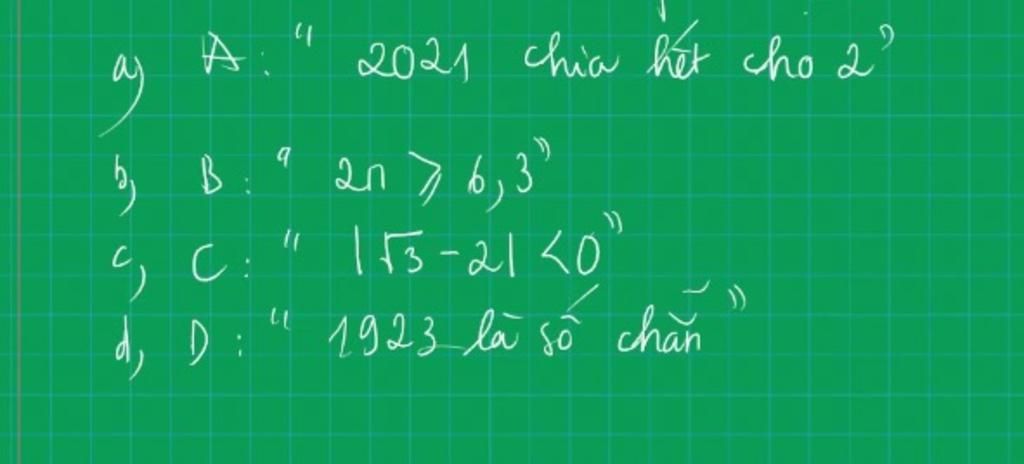 a, A: " 2021 chia hết cho 2"
b, B: " 2n ⩾ 6,3"
c, C: " |√3 - 2| < 0"
d, D: " 1923 là số chẵn "